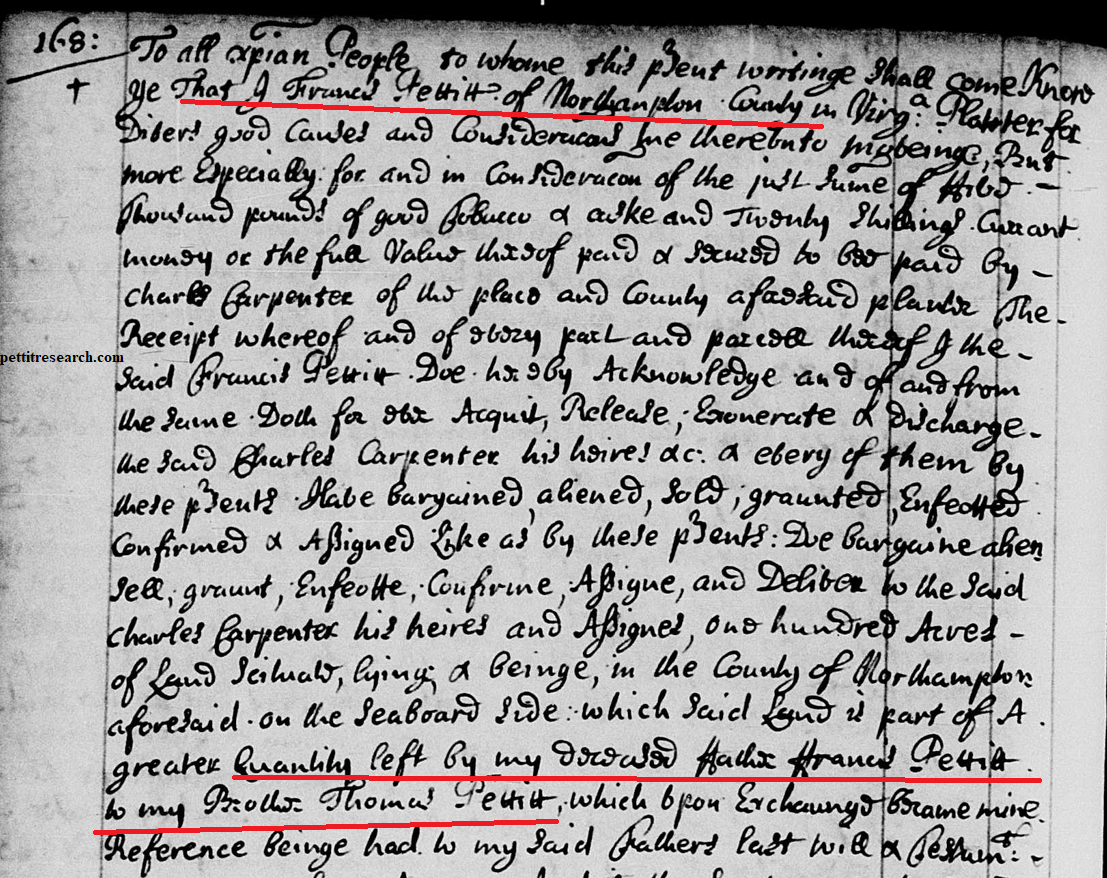 168:
To all xpian People to whome this p'sent writinge Shall come Know
Ye That I Francis Pettitt of Northampton County in Virg:a Planter for
Divers good Causes and Consideracons me thereunto moveing, But
more Especially for and in Consideracon of the just Sume of
thousand pounds of good Tobacco & caske and Twenty Shillings Currant
money or the full Value thereof paid & secured to bee paid by -
Charles Carpenter of the place and County aforesaid planter The -
Receipt whereof and of every part and parcell thereof I the -
pettitresearch.com
Said Francis Pettitt Doe hereby Acknowledge and of and from
the same Doth for ever Acquit, Release, Exonerate & discharge -
the said Charles Carpenter his heires &c: & every of them by
these p'sents Have bargained, aliened, Sold, graunted, Enfeoffed
Confirmed & Assigned Like as by these p'sents: Doe bargaine alien
Sell, graunt, Enfeoffe, Confirme, Assigne, and Deliver to the said
Charles Carpenter his heires and Assignes, one hundred Acres -
of Land Scituate, lying & beinge, in the County of Northampton
aforesaid on the Seaboard Side: which said Land is part of A
greater Quantity left by my deceased ffather ffrancis Pettitt
to my Brother Thomas Pettitt, which upon Exchaunge became mine
Reference beinge had to my said Fathers last will & Testamt: -